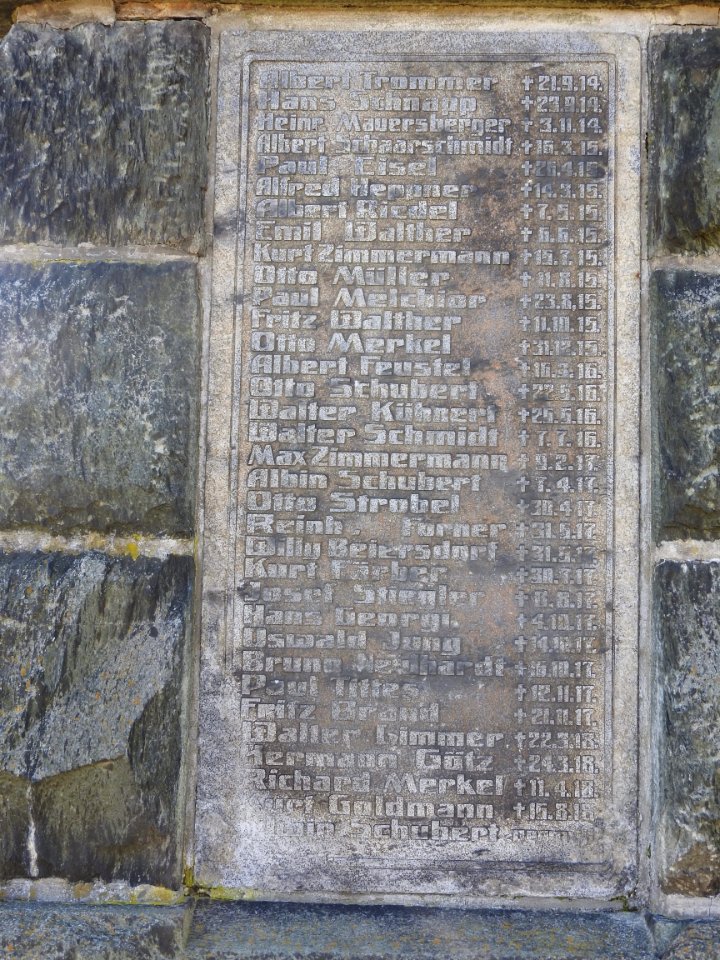 Albert Trommer †21.9.14.
Hans Schnapp †29.9.14.
Heinr. Mauersberger †3.11.14.
Albert Schaarschmidt †16.3.15.
Paul Eisel
Alfred Heppner †14.3.15.
Albert Riedel †7.5.15.
Emil Walther †6.6.15.
Kurt Zimmermann †15.7.15.
Otto Müller †11.8.15.
Paul Melchior †23.8.15.
Fritz Walther †11.10.15.
Otto Merkel †31.12.15.
Albert Feustel †16.3.16.
Otto Schubert
Walter Kühnert †26.6.16.
Walter Schmidt †7.7.16.
Max Zimmermann †9.2.17.
Albin Schubert †7.4.17.
Otto Strobel †30.4.17.
Reinh. Forner †31.5.17.
Willy Beiersdorf †31.5.17.
Kurt Färber
Josef Stiegler
Hans Georgi †4.10.17.
Oswald Jung
Bruno †16.10.17.
Paul †12.11.17.
Fritz Brand †21.11.17.
Walter Gimmer †22.3.18.
Hermann Götz †24.3.18.
Richard Merkel †11.4.18.
Kurt Goldmann †15.8.18.
Schubert